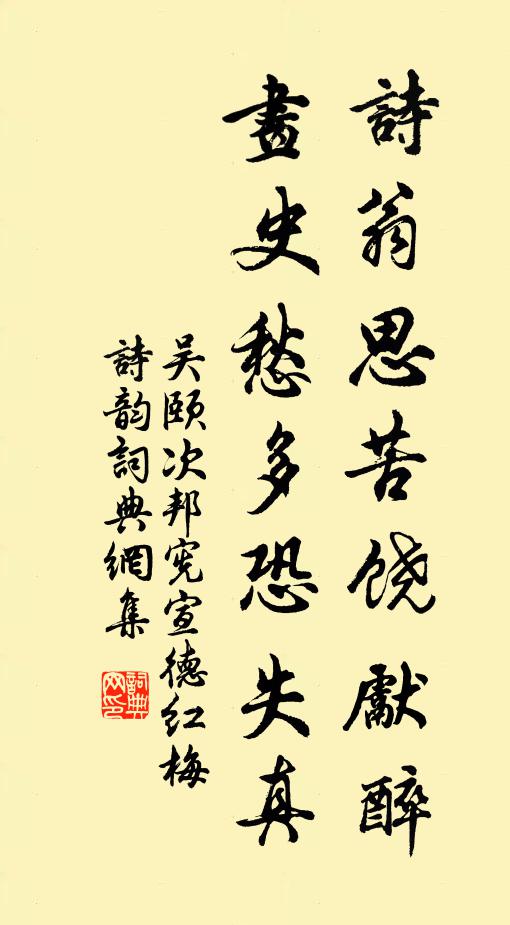 詩翁思苦饶獻醉
畫史愁多恐失真
吴颐次邦宪宣德红梅
詩韵詞典網集
詞典
网印